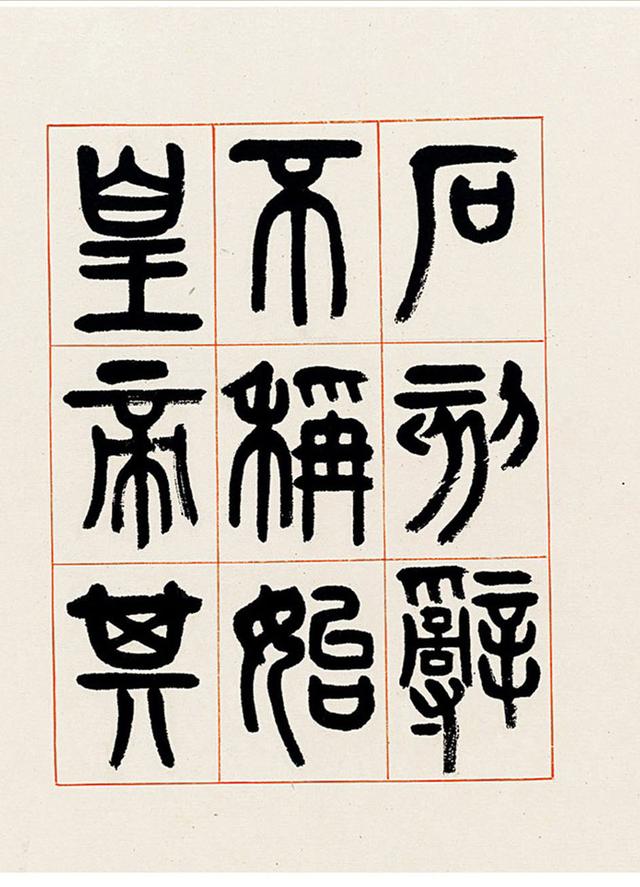 石刻辭
不稱始
皇帝其